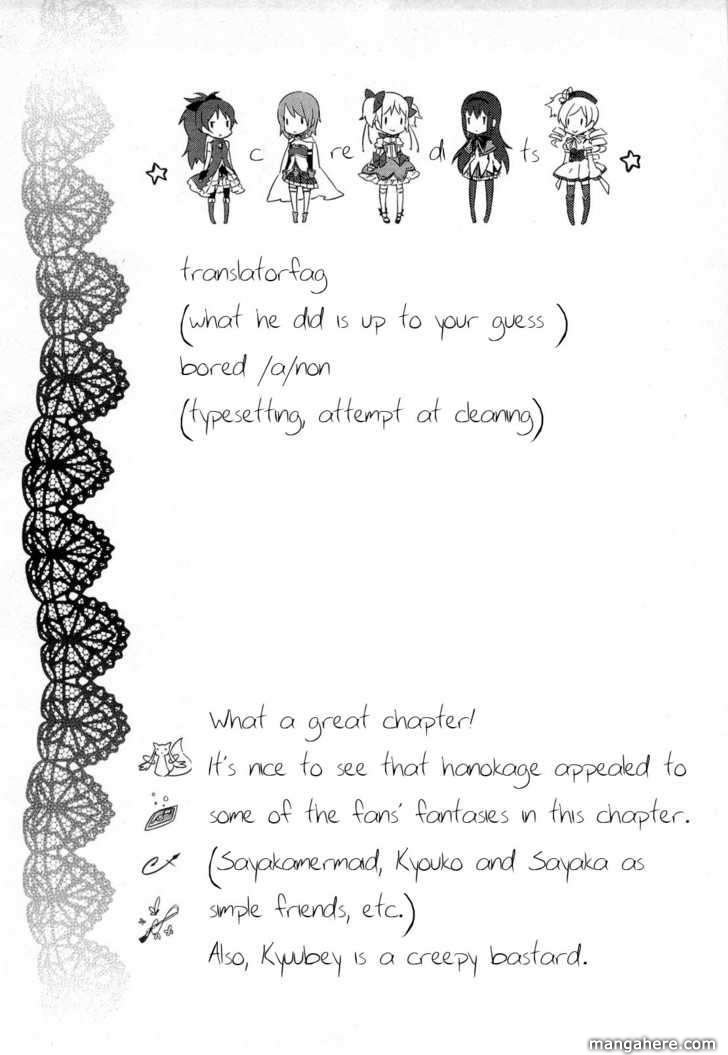 credits
translatorfag
(what he did is up to your guess )
bored /a/non
(typesetting, attempt at cleaning)
What a great chapter!
It's nice to see that hanokage appealed to
some of the fans' fantasies in this chapter.
(Sayakamermaid, Kyouko and Sayaka as
simple friends, etc.)
Also, Kyuubey is a creepy bastard.
mangahere.com